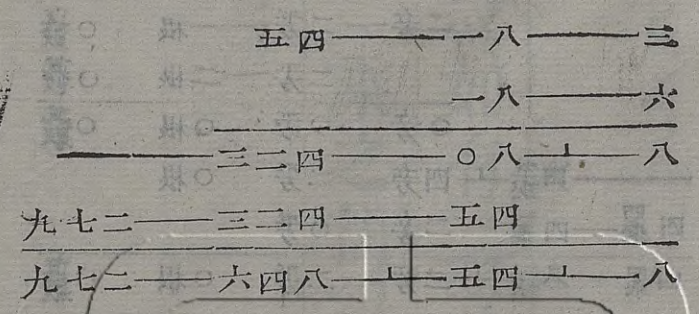 五四——一八——三
一八——六
——三二四——〇八⊥一八
九七二——三二四——五四
九七二——六四八—⊥—五四—⊥一八